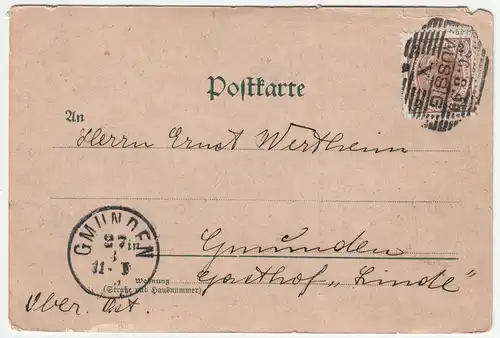 Postkarte
AUSSIG
An
Herrn Ernst Wertheim
GMUNDEN
27
8
in
Gmunden
Wohnung
(Straße und Hausnummer)
Gasthof „Linde"
Ober. Öst.